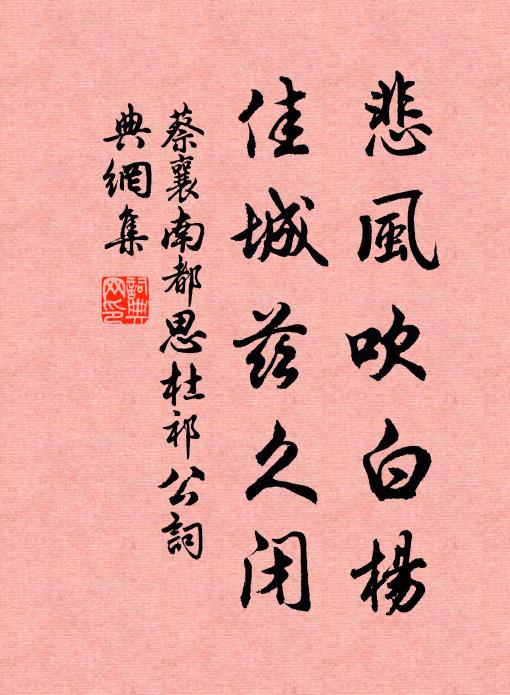 悲風吹白楊
佳城茲久闭
蔡襄南都思杜祁公詞
典網集
詞典
网印